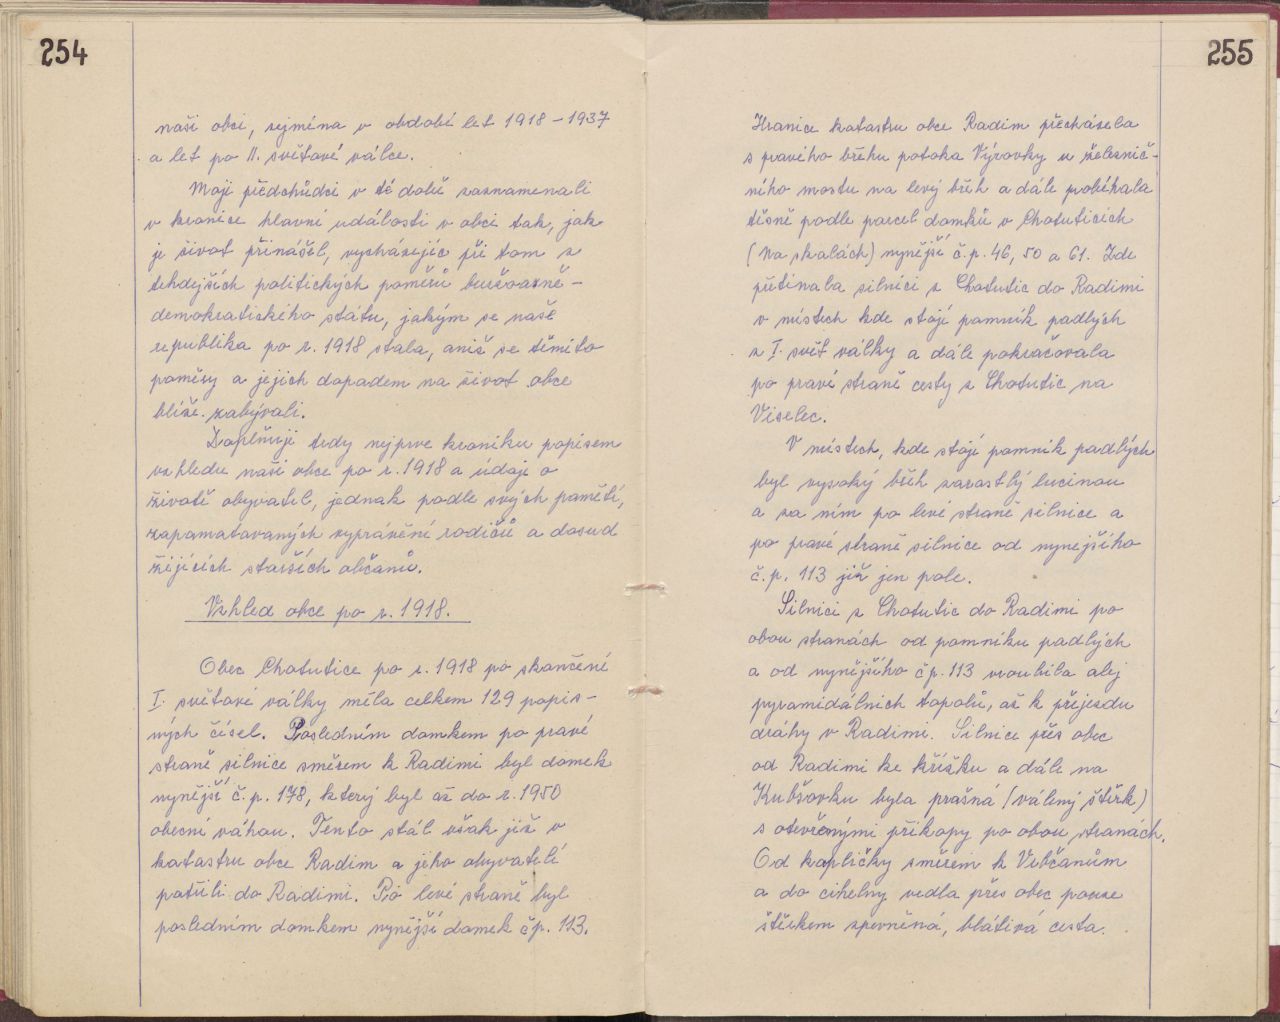 254
naši obci, zejména v období let 1918 – 1937
a let po II. světové válce.
Moji předchůdci v té době zaznamenali
v kronice hlavní události v obci tak, jak
je život přinášel, vycházejíc při tom z
tehdejších politických poměrů buržoazně –
demokratického státu, jakým se naše
republika po r. 1918 stala, aniž se těmito
poměry a jejich dopadem na život obce
blíže zabývali.
Doplňuji tedy nejprve kroniku popisem
vzhledu naší obce po r. 1918 a údaji o
životě obyvatel, jednak podle svých pamětí,
zapamatovaných vyprávění rodičů a dosud
žijících starších občanů.
Vzhled obce po r. 1918.
Obec Chotutice po r. 1918 po skončení
I. světové války měla celkem 129 popis–
ných čísel. Posledním domkem po pravé
straně silnice směrem k Radimi byl domek
nynější č.p. 178, který byl až do r. 1950
obecní váhou. Tento stál však již v
katastru obce Radim a jeho obyvatelé
patřili do Radimi. Po levé straně byl
posledním domkem nynější domek čp. 113.
255
Hranice katastru obce Radim přecházela
z pravého břehu potoka Výrovky u železnič–
ního mostu na levý břeh a dále probíhala
těsně podle parcel domků v Chotuticích
(Na skalách) nynější č.p. 46, 50 a 61. Zde
přetínala silnici z Chotutic do Radimi
v místech kde stojí pomník padlých
z I. svět války a dále pokračovala
po pravé straně cesty z Chotutic na
Viselec.
V místech, kde stojí pomník padlých
byl vysoký břeh zarostlý lucinou
a za ním po levé straně silnice a
po pravé straně silnice od nynejšího
č.p. 113 již jen pole.
Silnici z Chotutic do Radimi po
obou stranách od pomníku padlých
a od nynějšího čp. 113 vroubila alej
pyramidálních topolů, až k přejezdu
dráhy v Radimi. Silnice přes obec
od Radimi ke křížku a dále na
Kubšovku byla prašná (válený štěrk)
s otevřenými příkopy po obou stranách.
Od kapličky směrem k Vrbčanům
a do cihelny vedla přes obec pouze
štěrkem zpevněná, blátivá cesta.